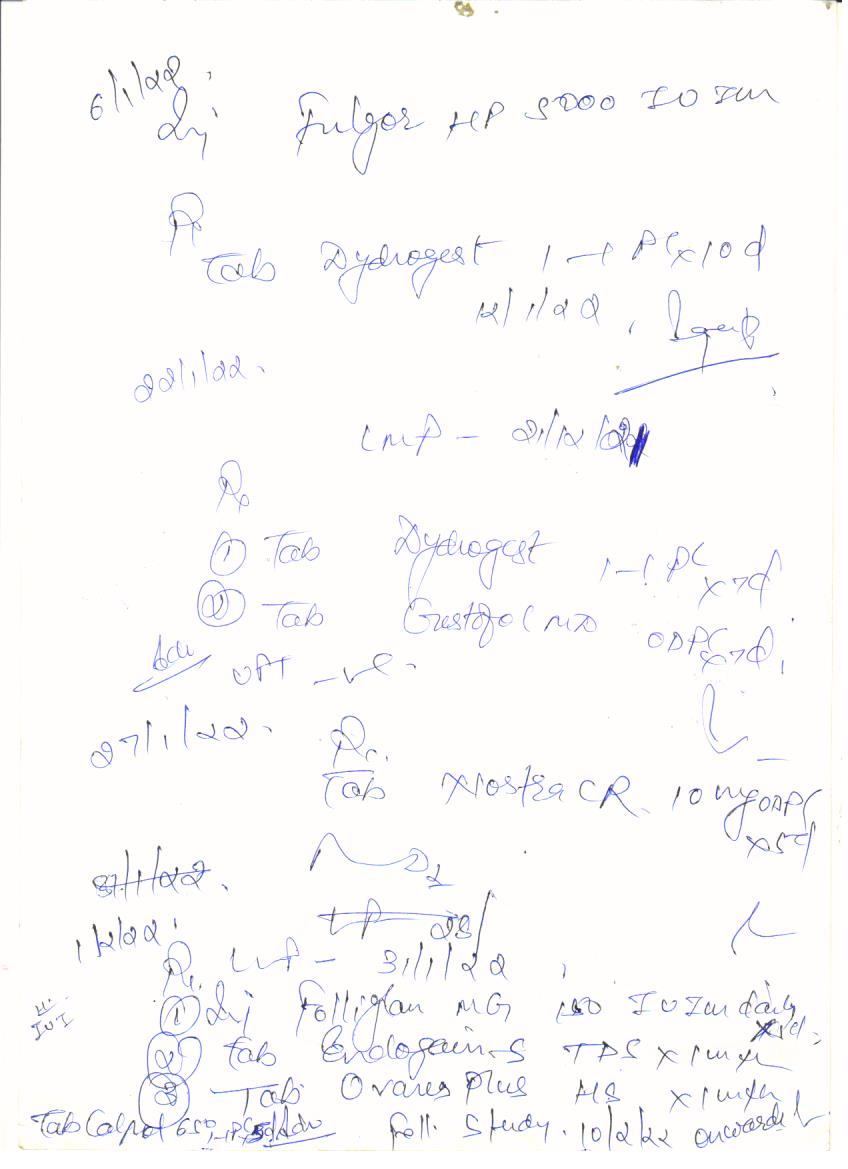 6/1/22.
Inj Fulgor HP 5000 IU IM
Rx
Tab Dydrogest 1-1 PC x 10d
12/1/22.
22/1/22.
LMP - 21/12/21
Rx
① Tab Dydrogest 1-1 PC x 7d
② Tab Gestofol MD ODPC x 7d
Adv UPT -ve.
27/1/22.
Rx.
Tab Nostra CR 10 mg ODPC x 5d
31/1/22.
D2
1/2/22. LP 28/
Rx. LMP - 31/1/22
① Inj Folliglan MG 150 IU IM daily x
IUI
② Tab Endogain-S TDS x 1 mth
③ Tab Ovares Plus HS x 1 mth
Tab Calpol 650 Foll. Study. 10/2/22 onwards